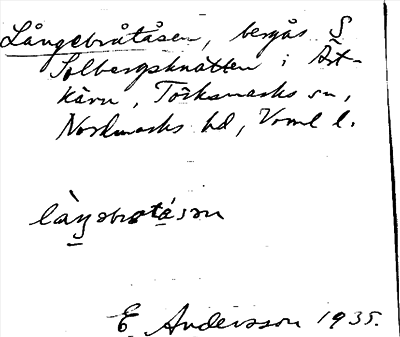 Långebråtåsen, bergås S
Solbergsknatten i Art-
kärn, Töcksmarks sn,
Nordmarks hd, Vrml l.
làŋəbrotásən
E Andersson 1935.